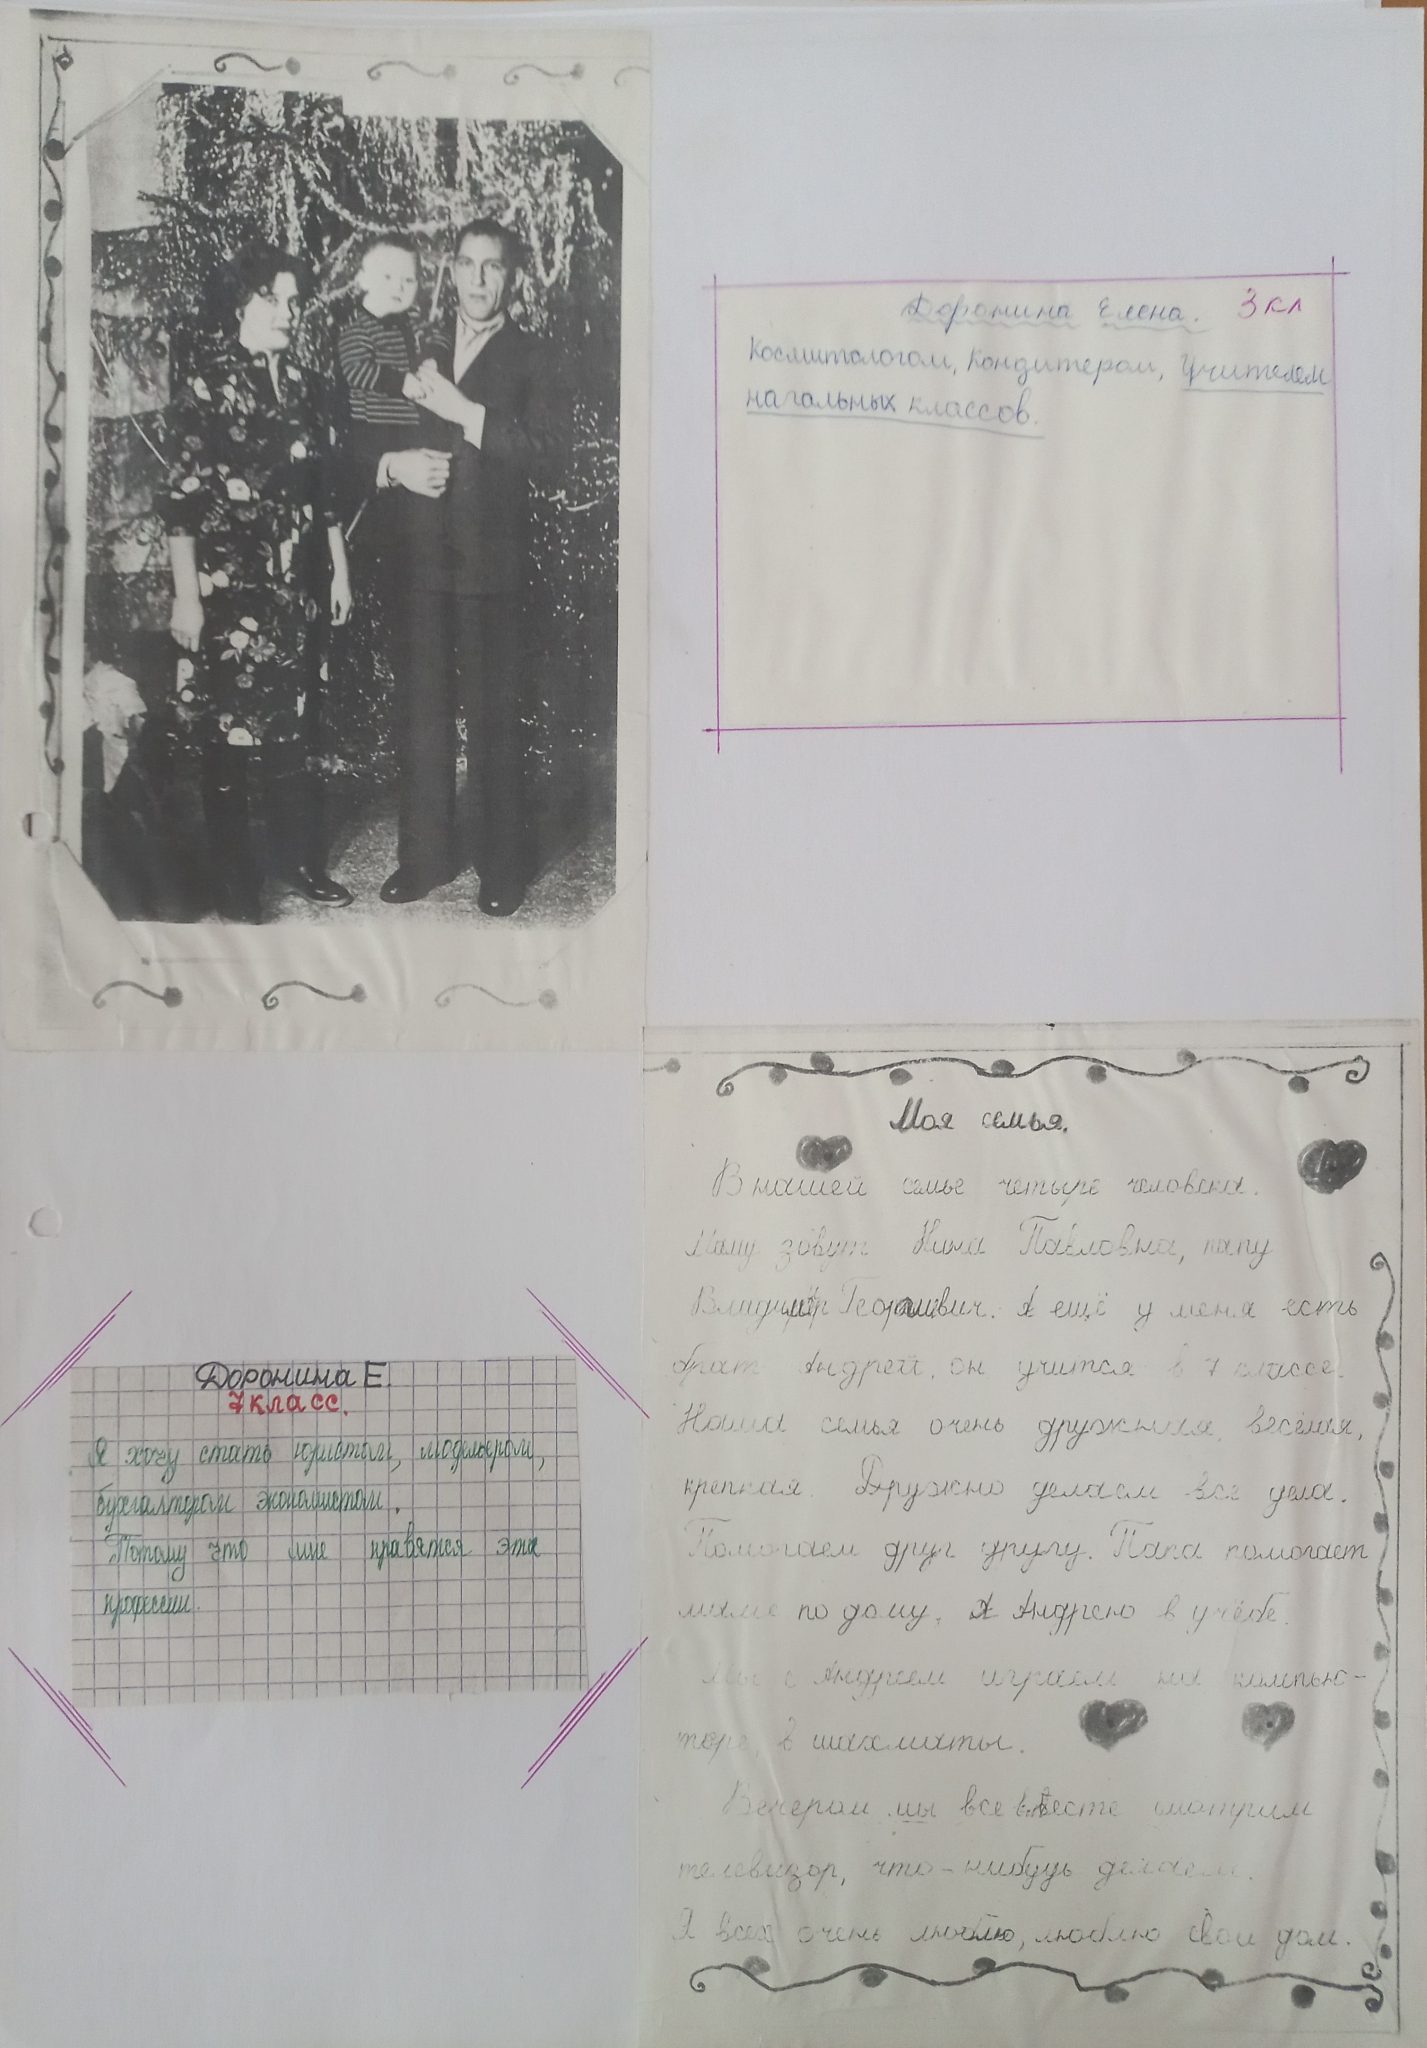 Доронина Елена. 3 кл
Косметологом, Кондитером, Учителем
начальных классов.
Доронина Е.
7 класс.
Я хочу стать юристом, модельером,
бухгалтером экономистом.
Потому что мне нравятся эти
профессии.
Моя семья.
В нашей семье четыре человека.
Маму зовут Нина Павловна, папу
Владимир Георгиевич. А ещё у меня есть
брат Андрей, он учится в 7 классе.
Наша семья очень дружная, весёлая,
крепкая. Дружно делаем все дела.
Помогаем друг другу. Папа помогает
маме по дому, а Андрею в учёбе.
Мы с Андреем играем на компью-
тере, в шахматы.
Вечером мы все вместе смотрим
телевизор, что-нибудь делаем.
Я всех очень люблю, люблю свой дом.